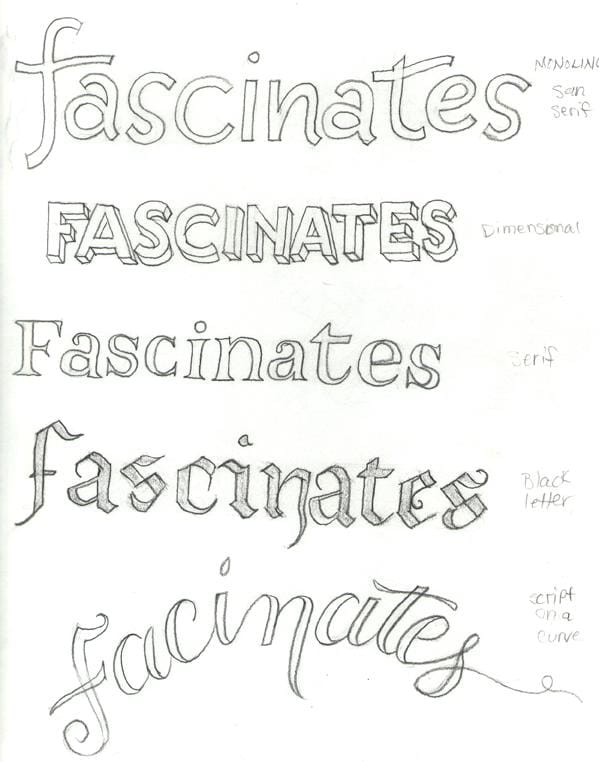 fascinates
MONOLIN
San
Serif
FASCINATES
Dimensional
Fascinates
Serif
fascinates
Black
letter
facinates
script
on a
curve